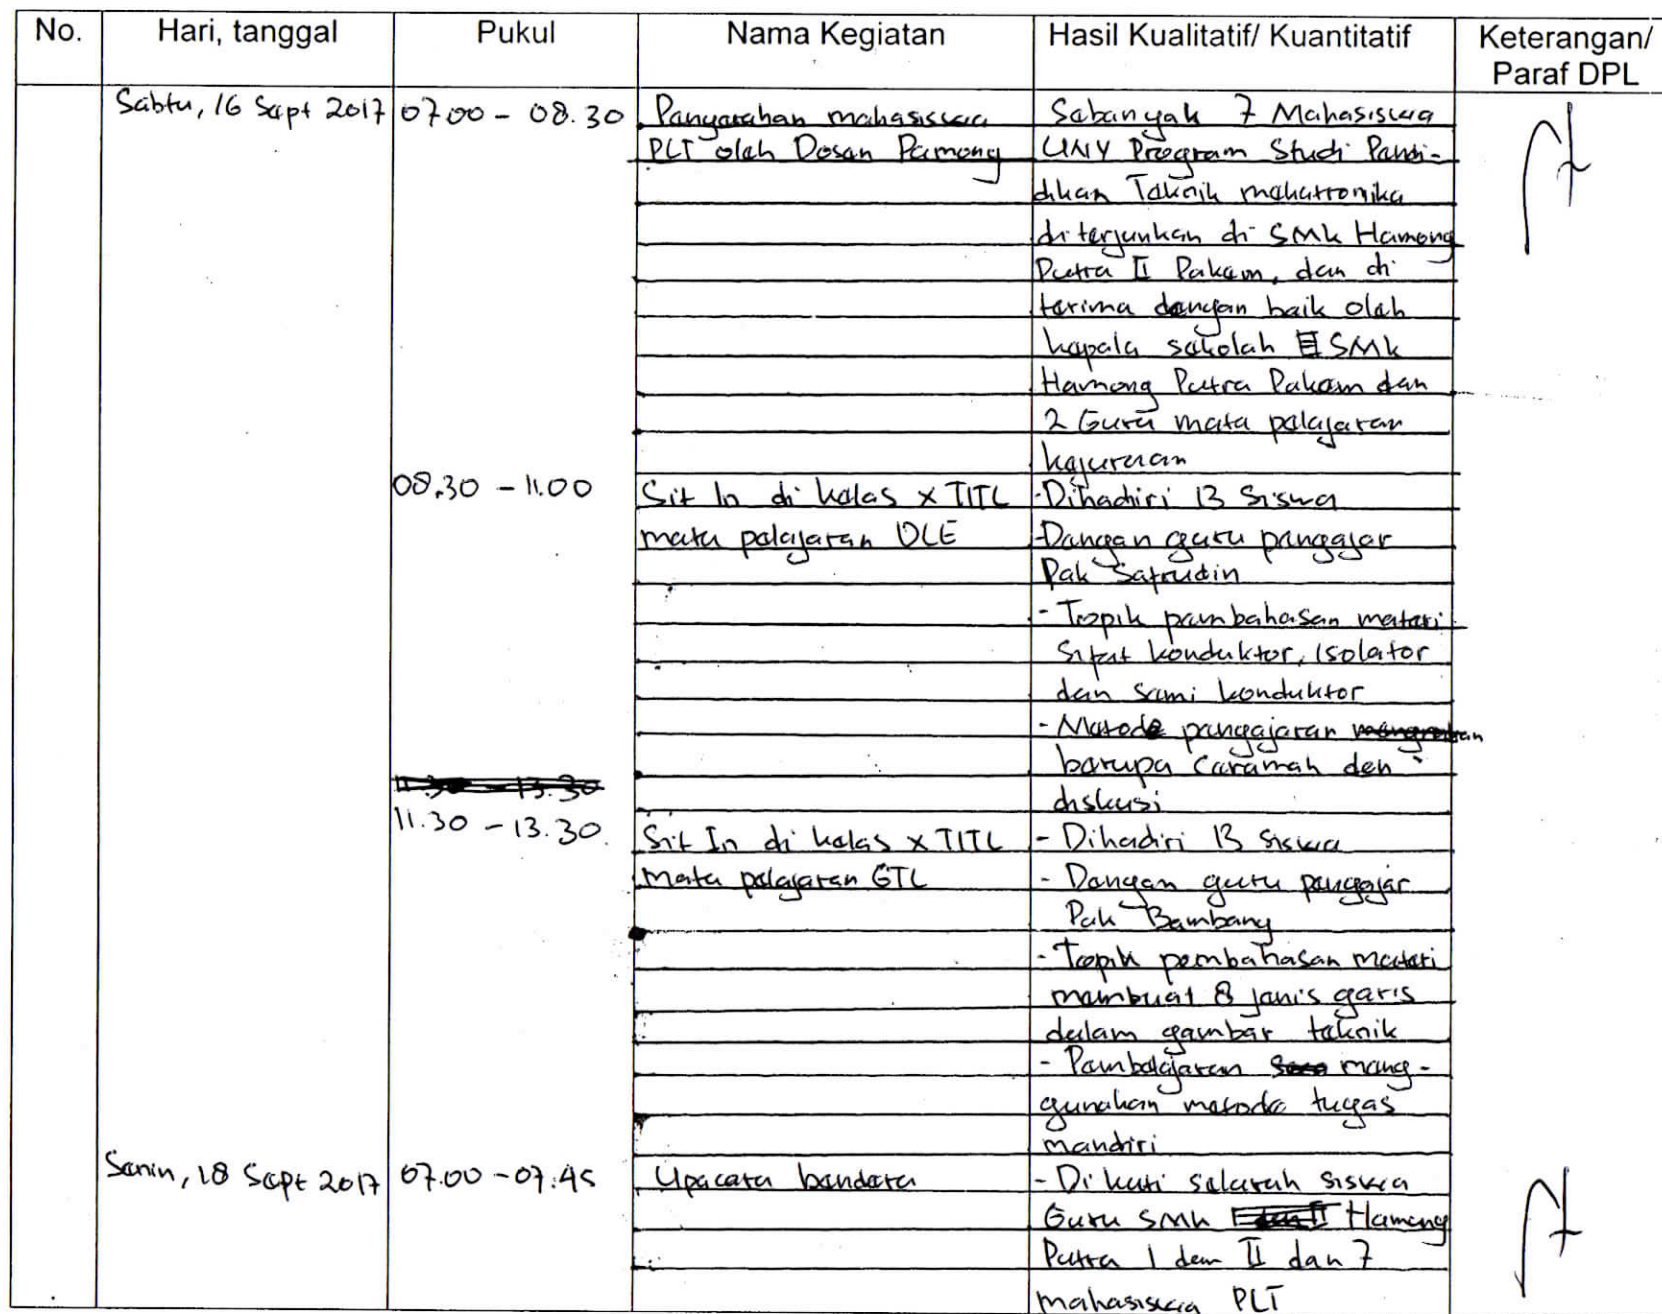 No. Hari, tanggal Pukul Nama Kegiatan Hasil Kualitatif/ Kuantitatif Keterangan/
Paraf DPL
Sabtu, 16 Sept 2017 07.00 - 08.30 Penyerahan mahasiswa Sebanyak 7 Mahasiswa
PLT oleh Dosen Pamong UNY Program Studi Pendi-
dikan Teknik mekatronika
diterjunkan di SMK Hamong
Putra II Pakem, dan di
terima dengan baik oleh
kepala sekolah SMK
Hamong Putra Pakem dan
2 Guru mata pelajaran
kejuruan
08.30 - 11.00 Sit In di kelas X TITL - Dihadiri 13 Siswa
mata pelajaran DLE - Dengan guru pengajar
Pak Safrudin
- Topik pembahasan materi
Sifat konduktor, isolator
dan semi konduktor
- Metode pengajaran
berupa Ceramah dan
diskusi
11.30 - 13.30
11.30 - 13.30. Sit In di kelas X TITL - Dihadiri 13 siswa
Mata pelajaran GTL - Dengan guru pengajar
Pak Bambang
- Topik pembahasan materi
membuat 8 jenis garis
dalam gambar teknik
- Pembelajaran meng-
gunakan metode tugas
mandiri
Senin, 18 Sept 2017 07.00 - 07.45 Upacara bendera - Di ikuti seluruh siswa
Guru SMK Hamong
Putra I dan II dan 7
mahasiswa PLT